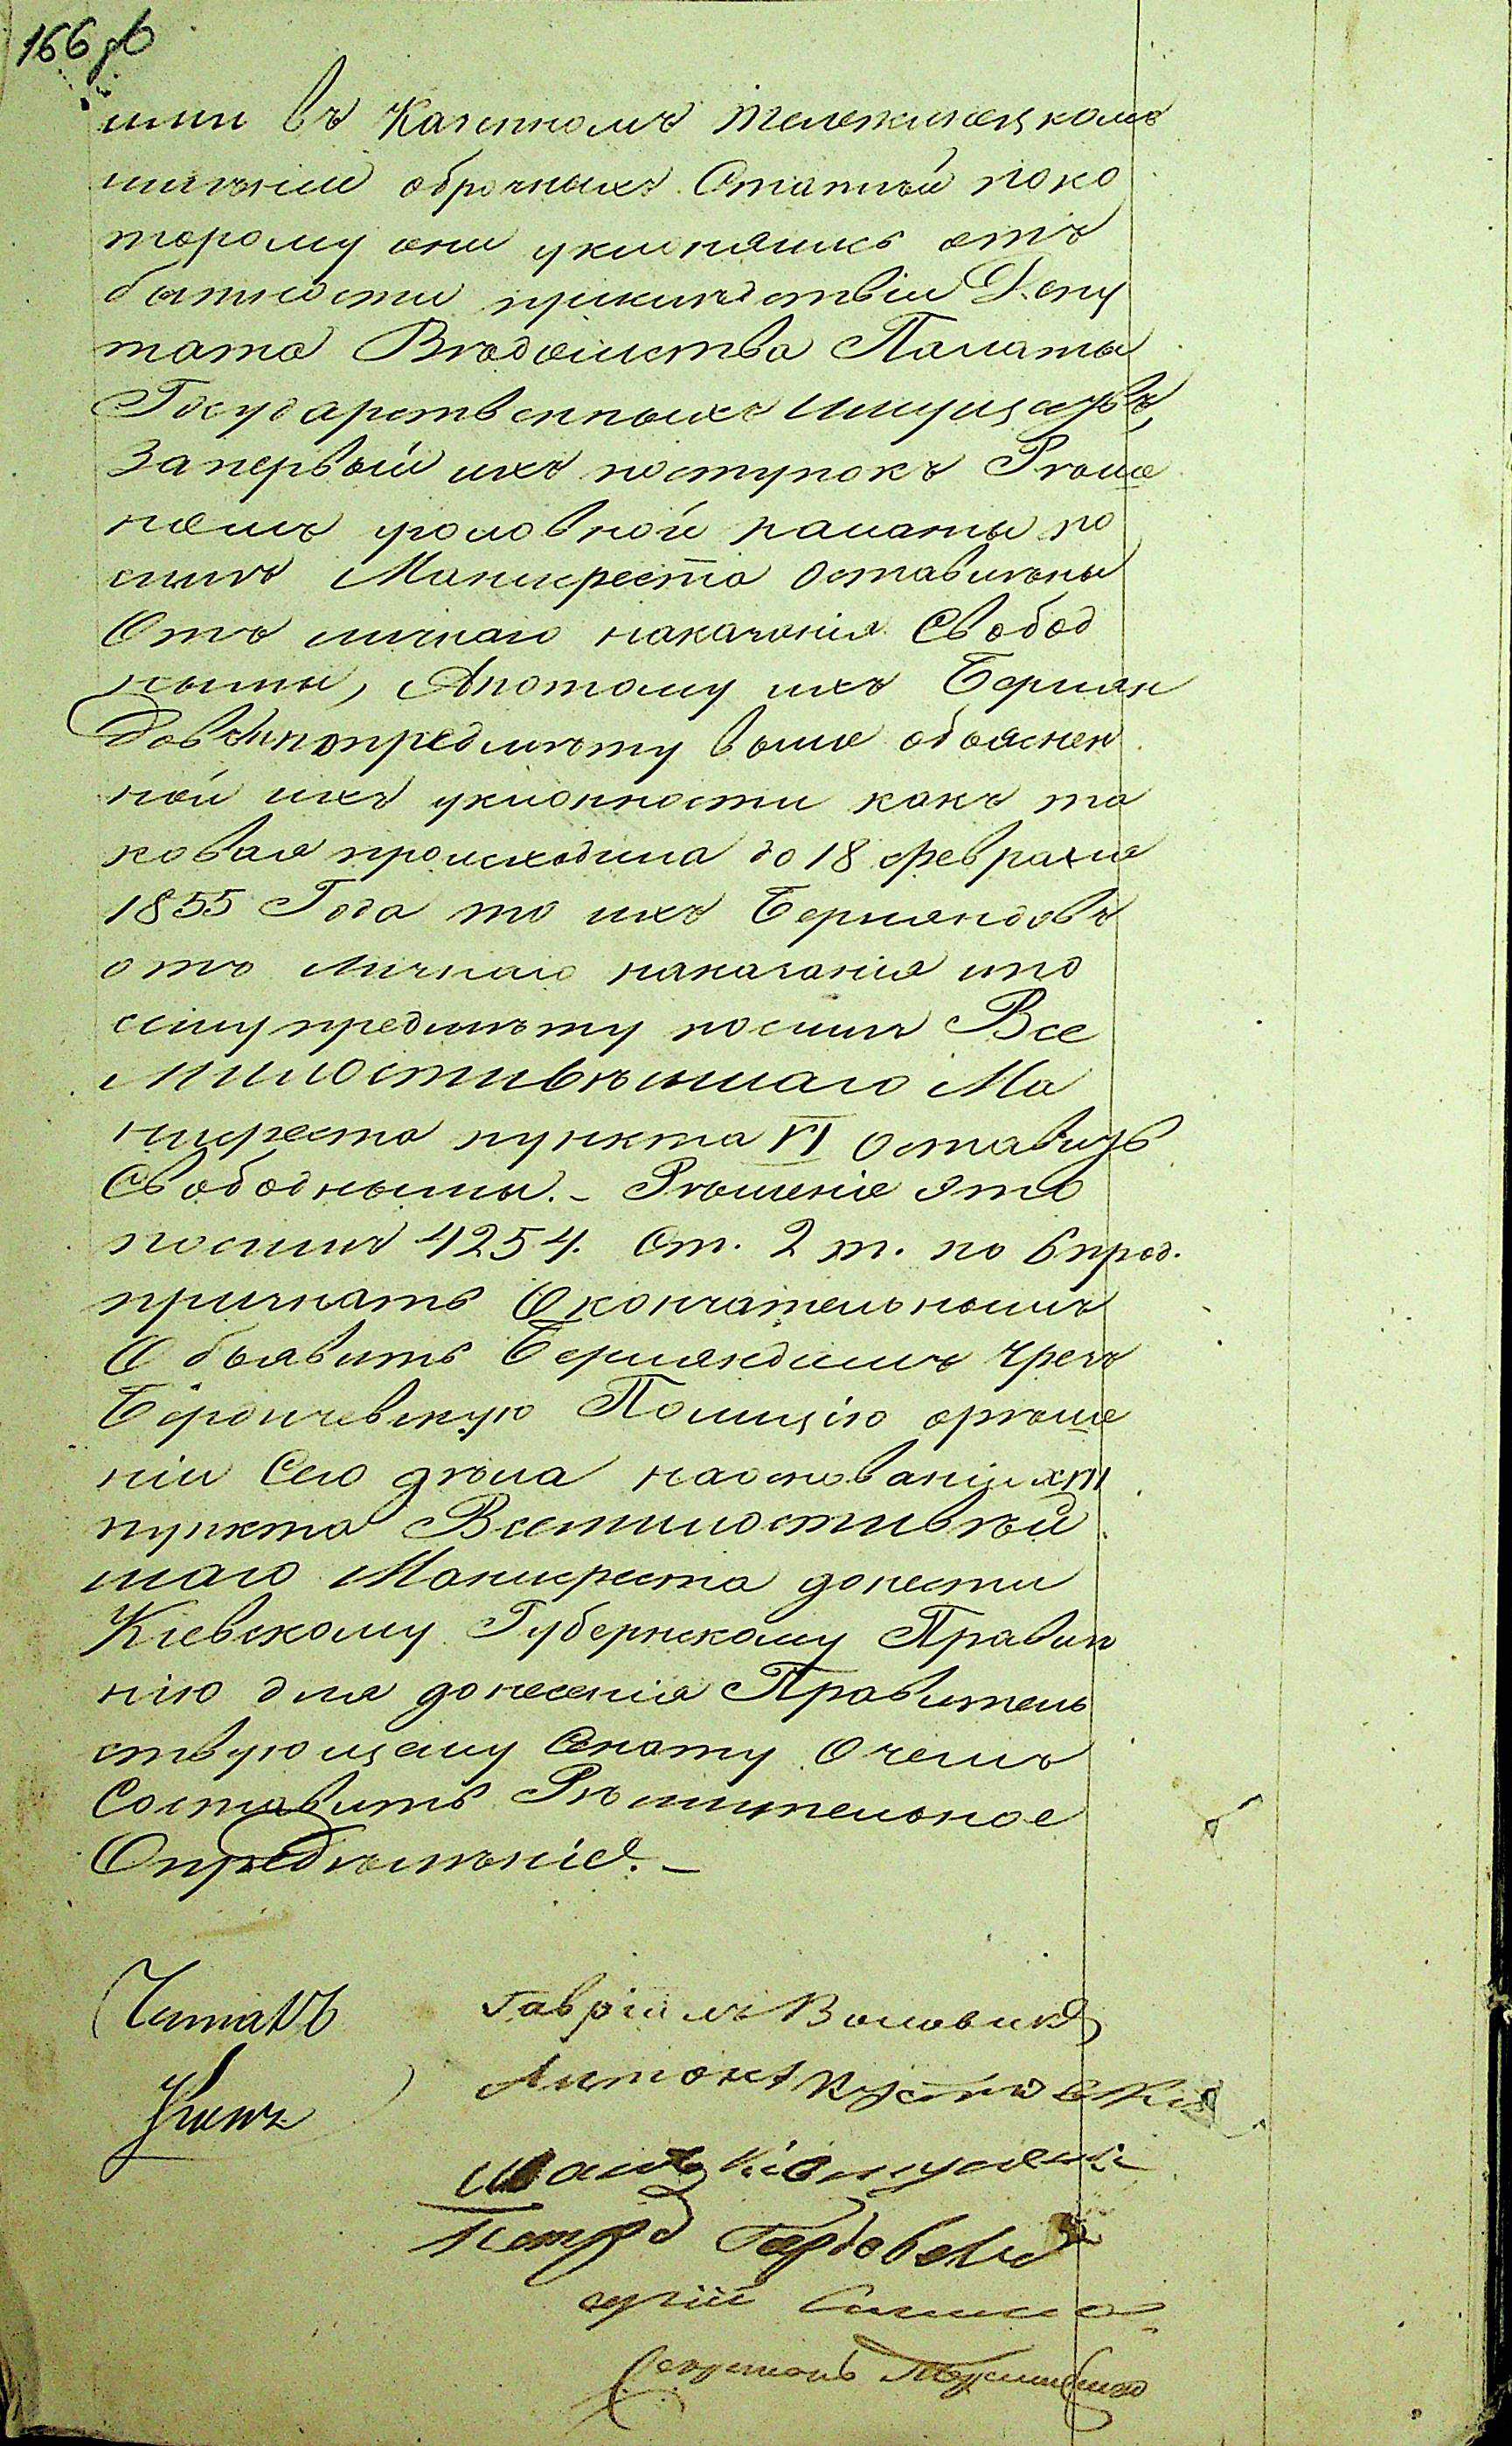 166 об
ими въ Казенномъ Тележинецкомъ
имѣніи оброчныхъ Статей поко
торому они уклонялись отъ
бытности прислѣдствіи Депу
тата Вѣдомства Палаты
Государственныхъ Имуществъ,
За первый ихъ поступокъ Рѣше
ніемъ уголовной палаты по
силѣ Манифеста оставлены
Отъ личнаго наказанія Свобод
ными, Апотому ихъ Берлян
довъ попредмѣту выше объяснен
ной ихъ уклонности какъ та
ковая происходила до 18 февраля
1855 Года то ихъ Берляндовъ
отъ личнаго наказанія ипо
сему предмѣту посилѣ Все
Милостивѣйшаго Ма
нифеста пункта VI оставить
Свободными. – Рѣшеніе это
посилѣ 4254. Ст. 2 т. по 6 прод.
признать Окончательнымъ
Объявить Берляндамъ чрезъ
Бердичевскую Полицію орѣше
ніи Сего дѣла наоснованіи XIII
пункта Всемилостивѣй
шаго Манифеста донести
Кіевскому Губернскому Правле
нію для донесенія Правитель
ствующему Сенату. О чемъ
Составить Рѣшительное
Опредѣленіе. –
Читалъ Гавріилъ Воловик
Антонъ
Петръ
Секретарь